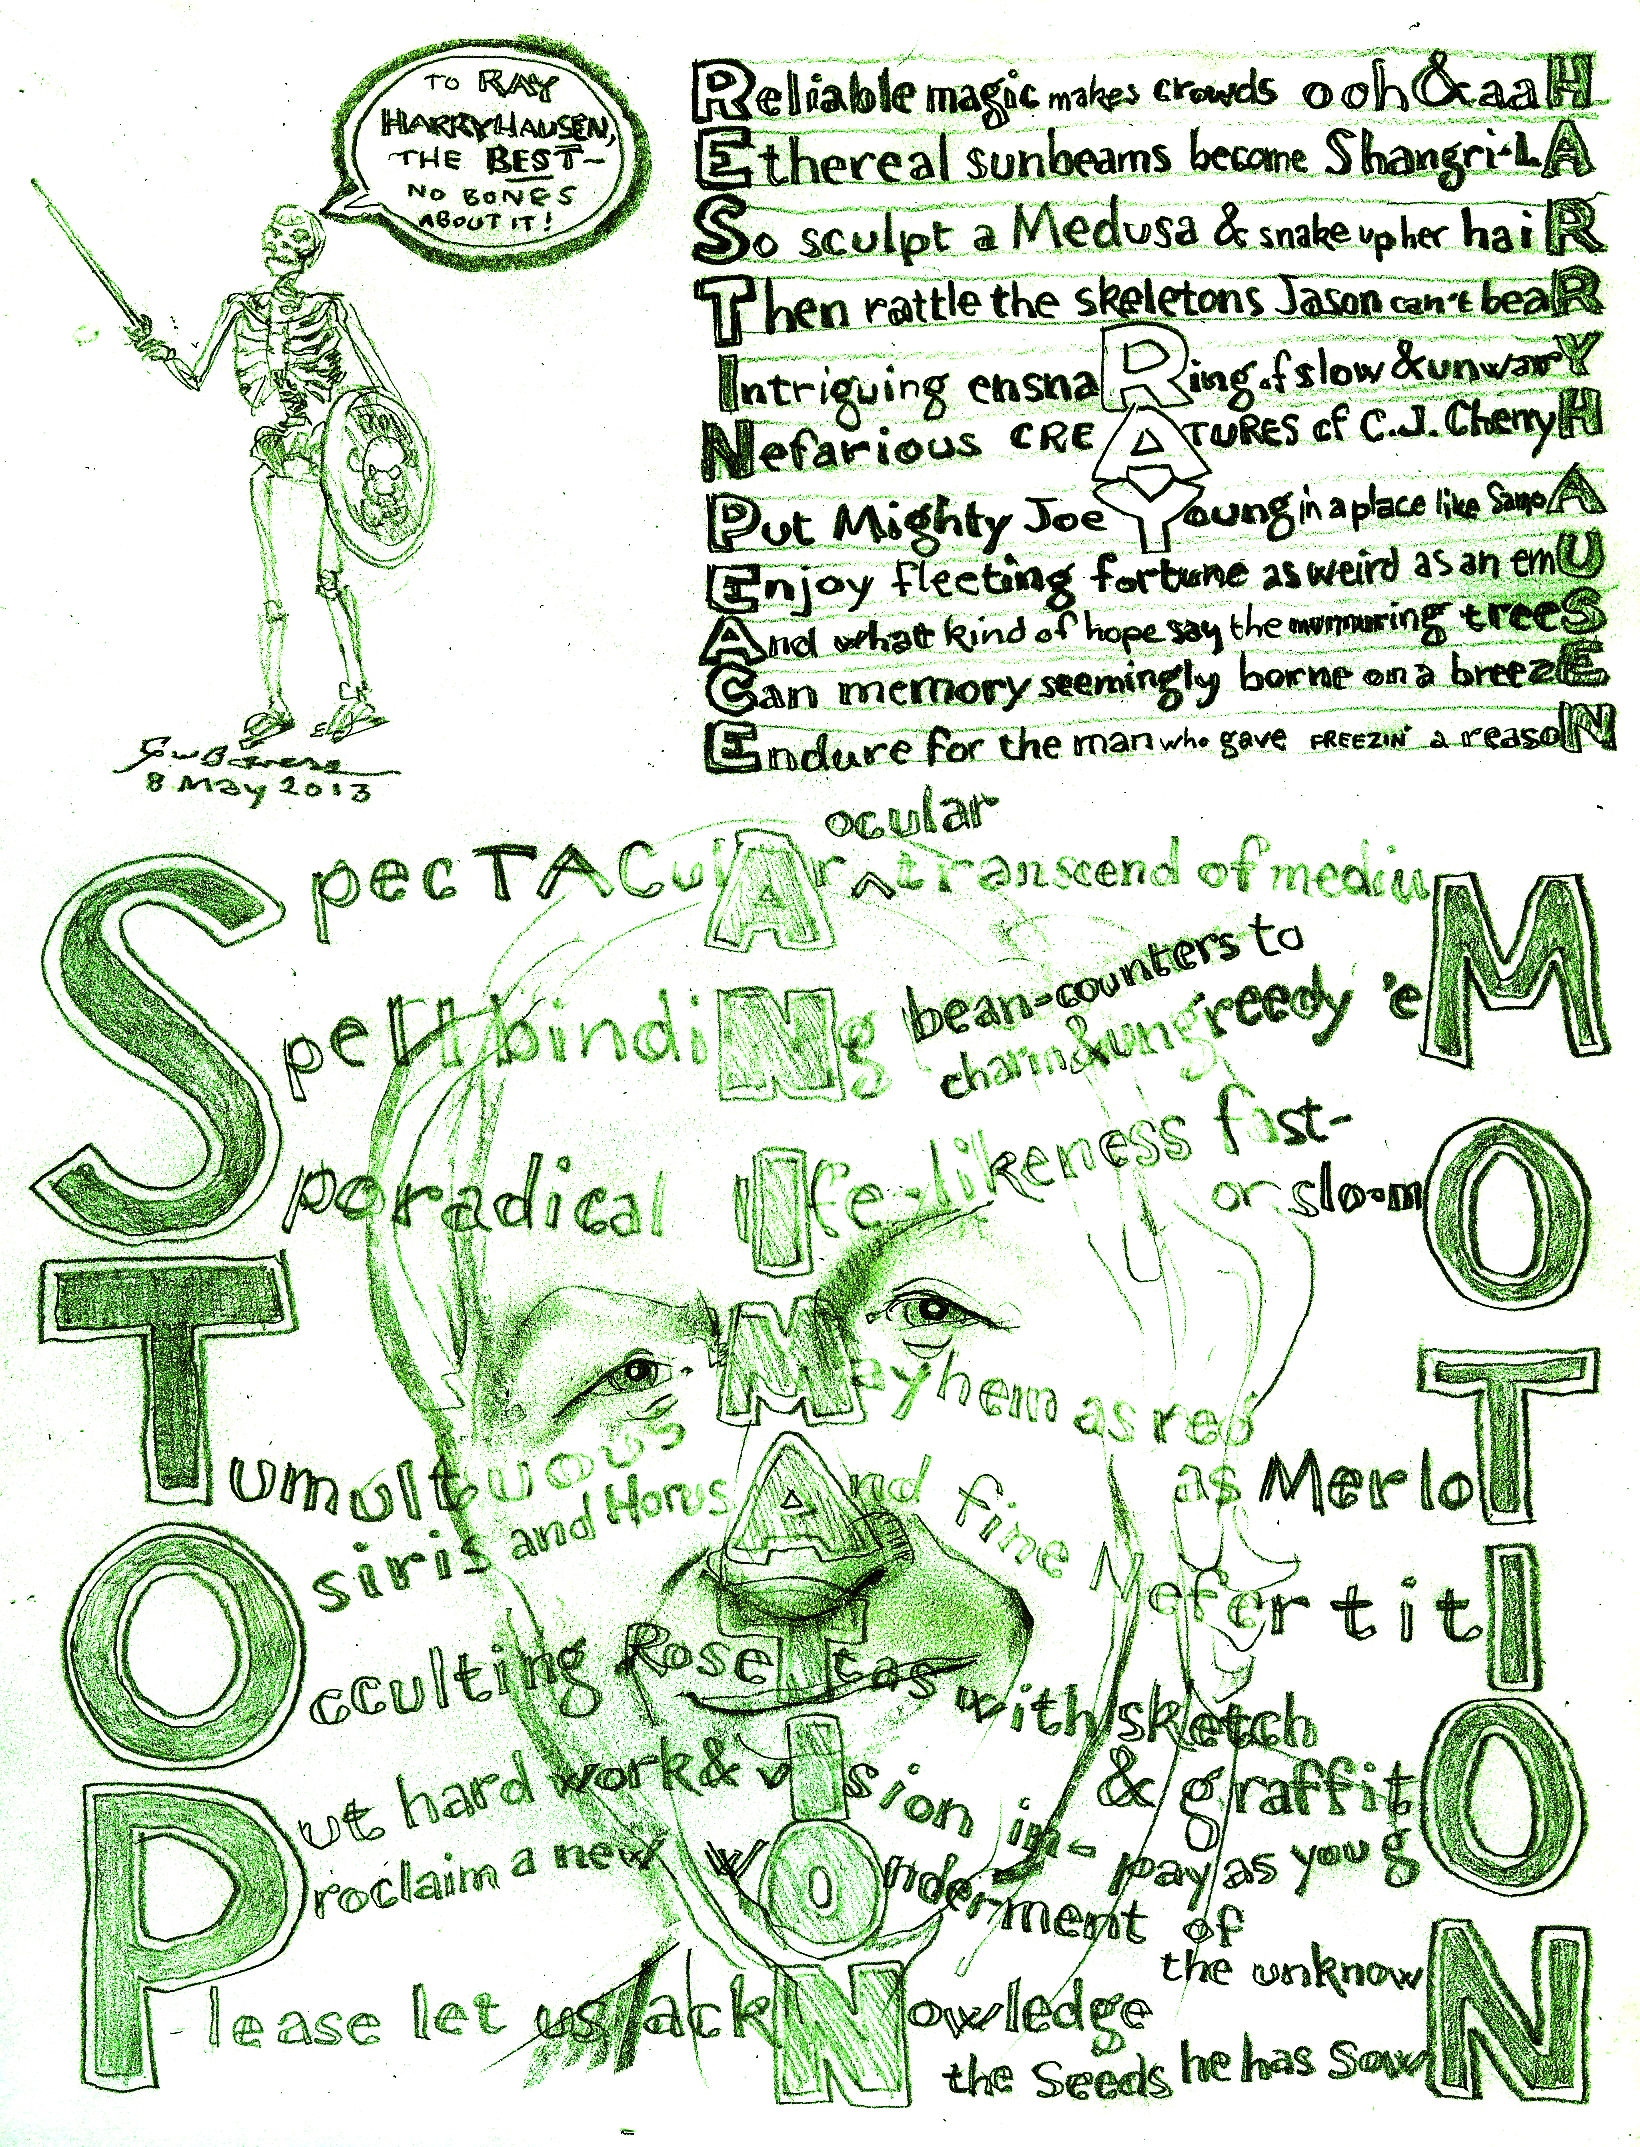 TO RAY
HARRYHAUSEN,
THE BEST—
NO BONES
ABOUT IT!
8 May 2013
Reliable magic makes crowds ooh & aaH
Ethereal sunbeams become Shangri-LA
So sculpt a Medusa & snake up her haiR
Then rattle the skeletons Jason can't beaR
Intriguing ensnaRing of slow & unwarY
Nefarious CREATURES of C.J. CherryH
Put Mighty Joe Young in a place like SamoA
Enjoy fleeting fortune as weird as an emU
And what kind of hope say the murmuring treeS
Can memory seemingly borne on a breezE
Endure for the man who gave FREEZIN' a reasoN
SpecTACulAr ocular transcend of mediuM
SpellbindiNg bean-counters to
charm & ungreedy 'eM
Sporadical lIfe-likeness fast-
or slo-mO
Tumultuous Mayhem as red
as MerloT
Osiris and Horus And fine NefertitI
Occulting RoseTtas with sketch
& graffitO
Put hard work & vIsion in-
pay as you gO
Proclaim a new wOnderment of
the unknowN
Please let us ackNowledge
the Seeds he has SowN